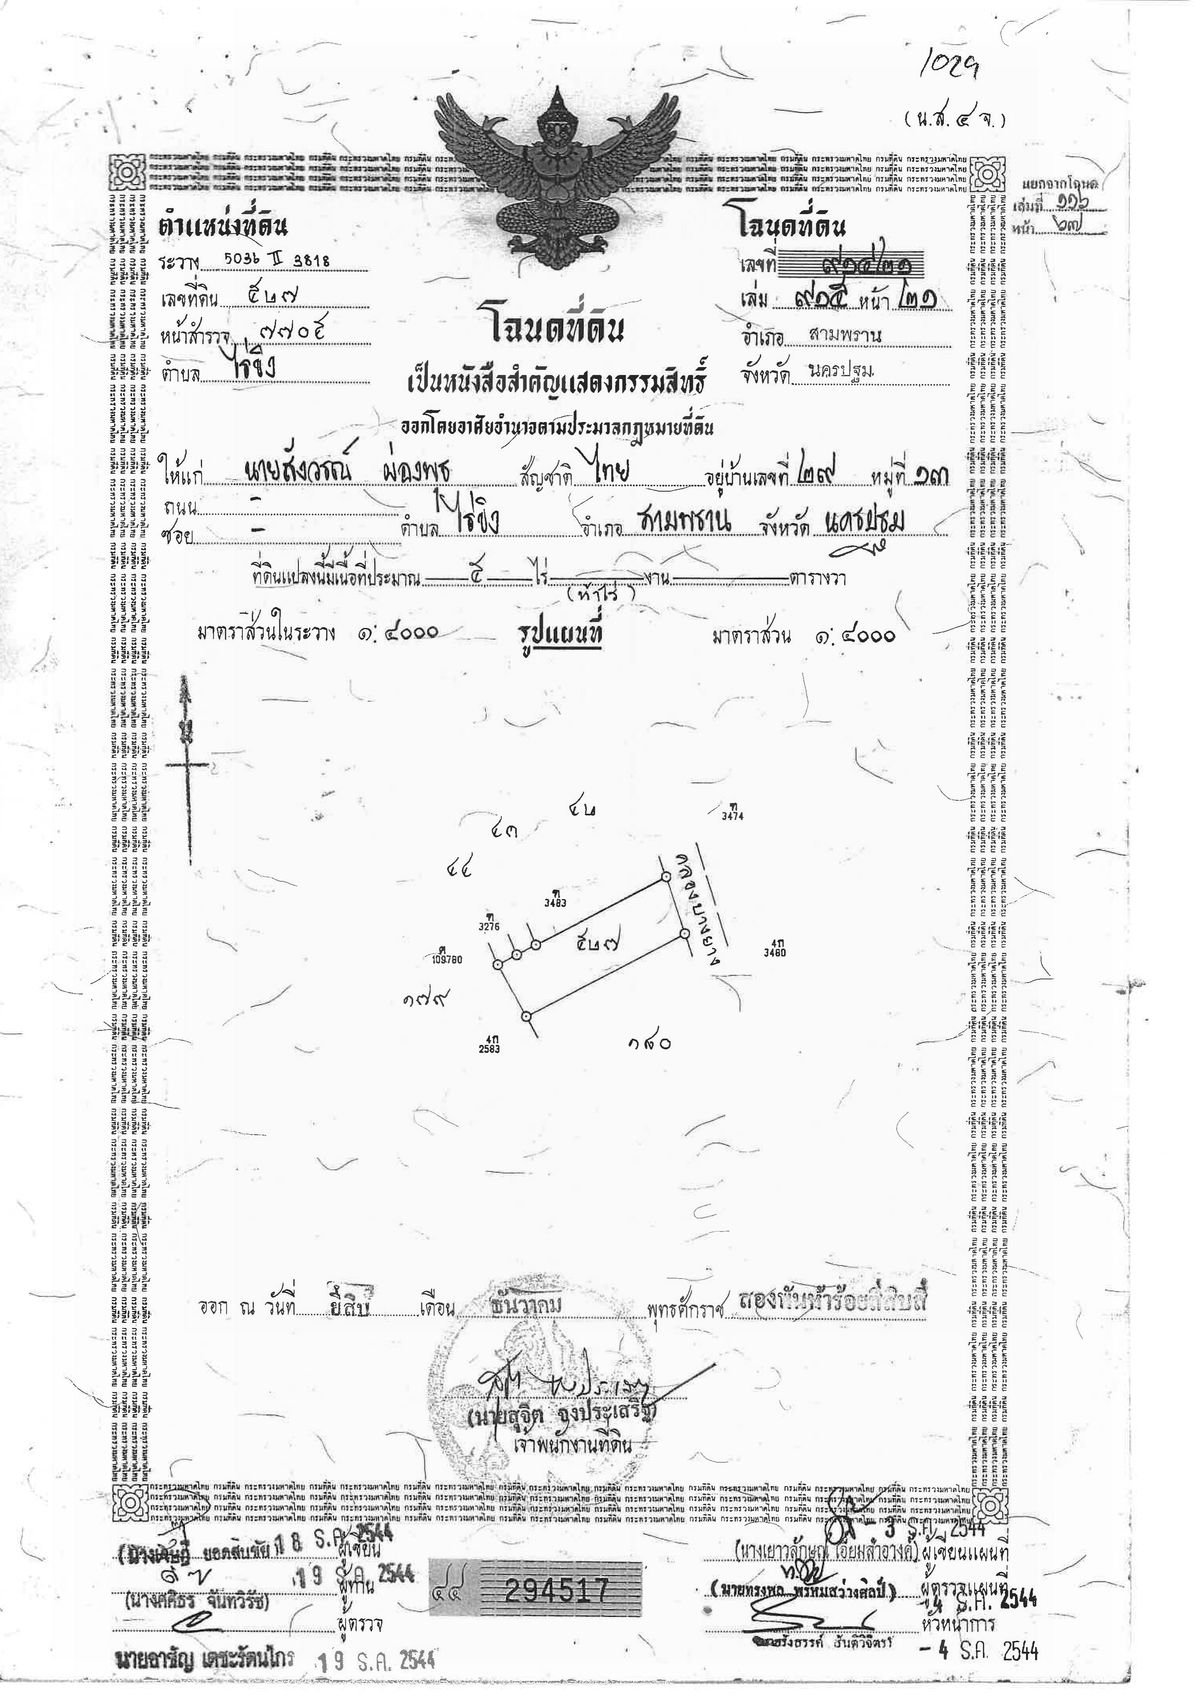 1029
(น.ส.๔ จ.)
แยกจากโฉนด
เล่มที่ ๑๑๖
หน้า ๖๗
ตำแหน่งที่ดิน
ระวาง 5036 II 3818
เลขที่ดิน ๕๒๗
หน้าสำรวจ ๗๗๐๕
ตำบล ไร่ขิง
โฉนดที่ดิน
เลขที่ ๙๑๔๒๑
เล่ม ๙๑๕ หน้า ๒๑
อำเภอ สามพราน
จังหวัด นครปฐม
โฉนดที่ดิน
เป็นหนังสือสำคัญแสดงกรรมสิทธิ์
ออกโดยอาศัยอำนาจตามประมวลกฎหมายที่ดิน
ให้แก่ นายสังวรณ์ ผ่องพุธ สัญชาติ ไทย อยู่บ้านเลขที่ ๒๙ หมู่ที่ ๑๓
ถนน -
ซอย - ตำบล ไร่ขิง อำเภอ สามพราน จังหวัด นครปฐม
ที่ดินแปลงนี้มีเนื้อที่ประมาณ ๕ ไร่ งาน ตารางวา
(ห้าไร่)
มาตราส่วนในระวาง ๑:๔๐๐๐ รูปแผนที่ มาตราส่วน ๑:๔๐๐๐
น
๔๒
๔๓
๔๔
ก
3474
ก
3483
ก
3276
ค
109780
๕๒๗
คลองบางยาง
4ก
3460
๑๗๙
4ก
2583
๑๘๐
ออก ณ วันที่ ยี่สิบ เดือน ธันวาคม พุทธศักราช สองพันห้าร้อยสี่สิบสี่
(นายสุจิต จงประเสริฐ)
เจ้าพนักงานที่ดิน
ยอดสินชัย 18 ธ.ค. 2544 ผู้เขียน
19 ธ.ค. 2544 ผู้ทาน
(นางศศิธร จันทวิรัช)
ผู้ตรวจ
นายชาญ เดชะรัตนไกร 19 ธ.ค. 2544
๔๔ 294517
- 3 ธ.ค. 2544
(นางเยาวลักษณ์ เอี่ยมสำอางค์) ผู้เขียนแผนที่
(นายทรงพล พรหมสว่างศิลป์) ผู้ตรวจแผนที่
- 4 ธ.ค. 2544
หัวหน้าการ
- 4 ธ.ค. 2544